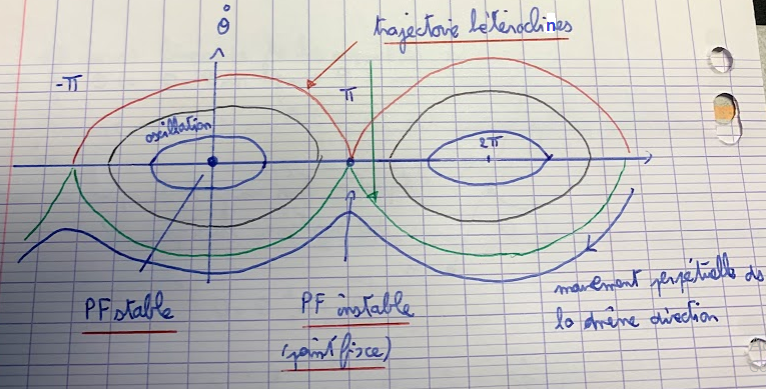 θ̇
trajectoire hétéroclines
-π
π
oscillation
2π
PF stable
PF instable
(point fixe)
mouvement perpétuelle ds
la même direction